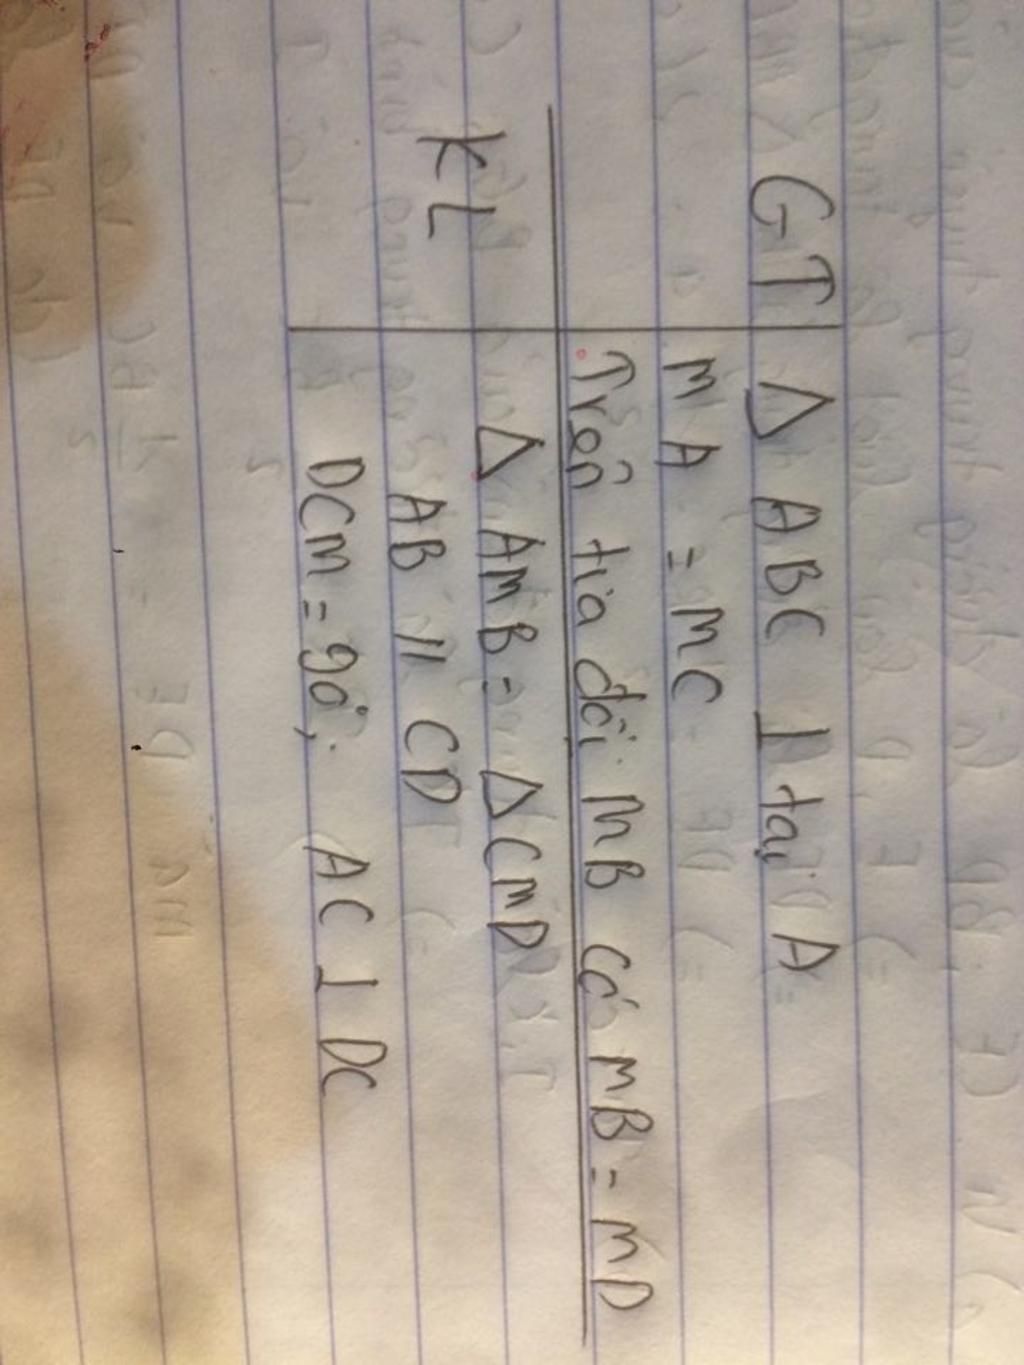 GT Δ ABC ⊥ tại A
MA = MC
Trên tia đối MB có MB = MD
KL Δ AMB = Δ CMD
AB // CD
DCM = 90°; AC ⊥ DC